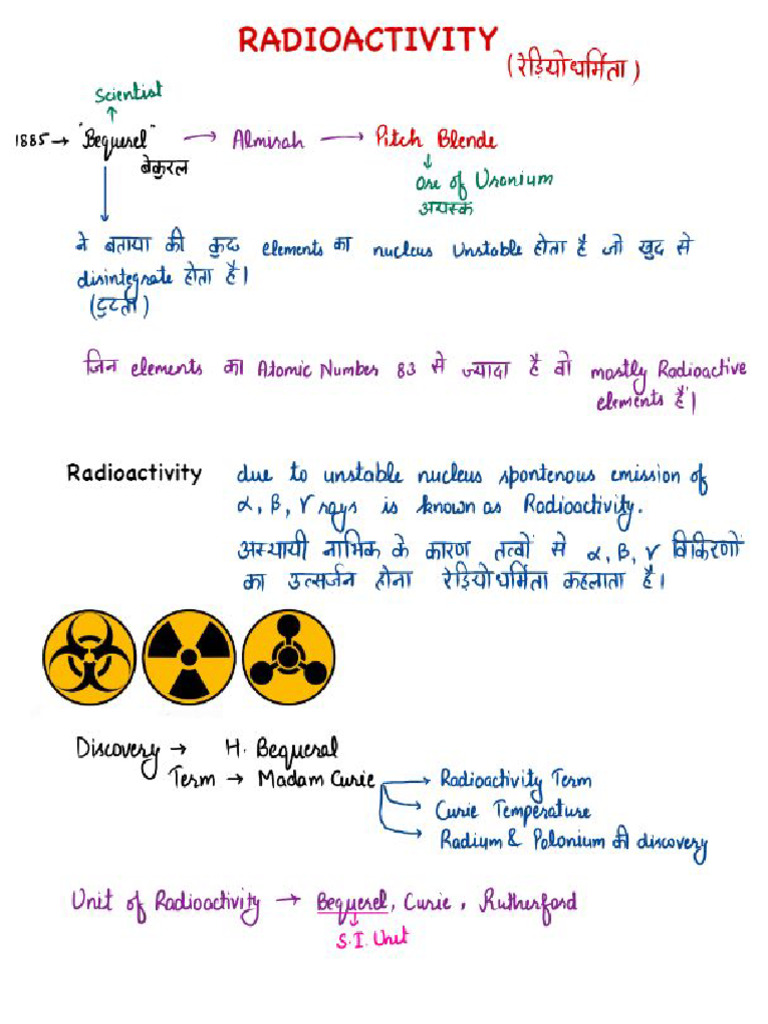 RADIOACTIVITY
(रेडियोधर्मिता)
Scientist
1885 → "Bequerel" → Almirah → Pitch Blende
बेकुरल
Ore of Uranium
अयस्क
ने बताया की कुछ elements का nucleus Unstable होता है जो खुद से
disintegrate होता है।
(टुटती)
जिन elements का Atomic Number 83 से ज्यादा है वो mostly Radioactive
elements हैं।
Radioactivity due to unstable nucleus spontenous emission of
α, β, γ rays is known as Radioactivity.
अस्थायी नाभिक के कारण तत्वों से α, β, γ विकिरणों
का उत्सर्जन होना रेडियोधर्मिता कहलाता है।
Discovery → H. Bequeral
Term → Madam Curie → Radioactivity Term
→ Curie Temperature
→ Radium & Polonium की discovery
Unit of Radioactivity → Bequerel, Curie, Rutherford
S.I. Unit